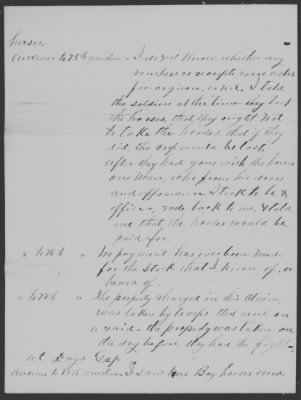 horses.
Answer to 75th question - I do not know whether any
vouchers or receipts were asked
for or given, or not, I told
the soldiers at the time they took
the horses, that they ought not
to take the horses, that if they
did, the orphans would be lost.
After they had gone with the horses
one man, who from his dress
and appearance I took to be an
officer, rode back to me, & told
me that the horses would be
paid for.
" to 76th " No payment has ever been made
for the stock that I know of, or
heard of.
" to 77th " The property charged in this claim,
was taken by troops that were on
a raid - the property was taken on
the day before they had the fight
at Days Gap
Answer to question - I saw two Bay horses and